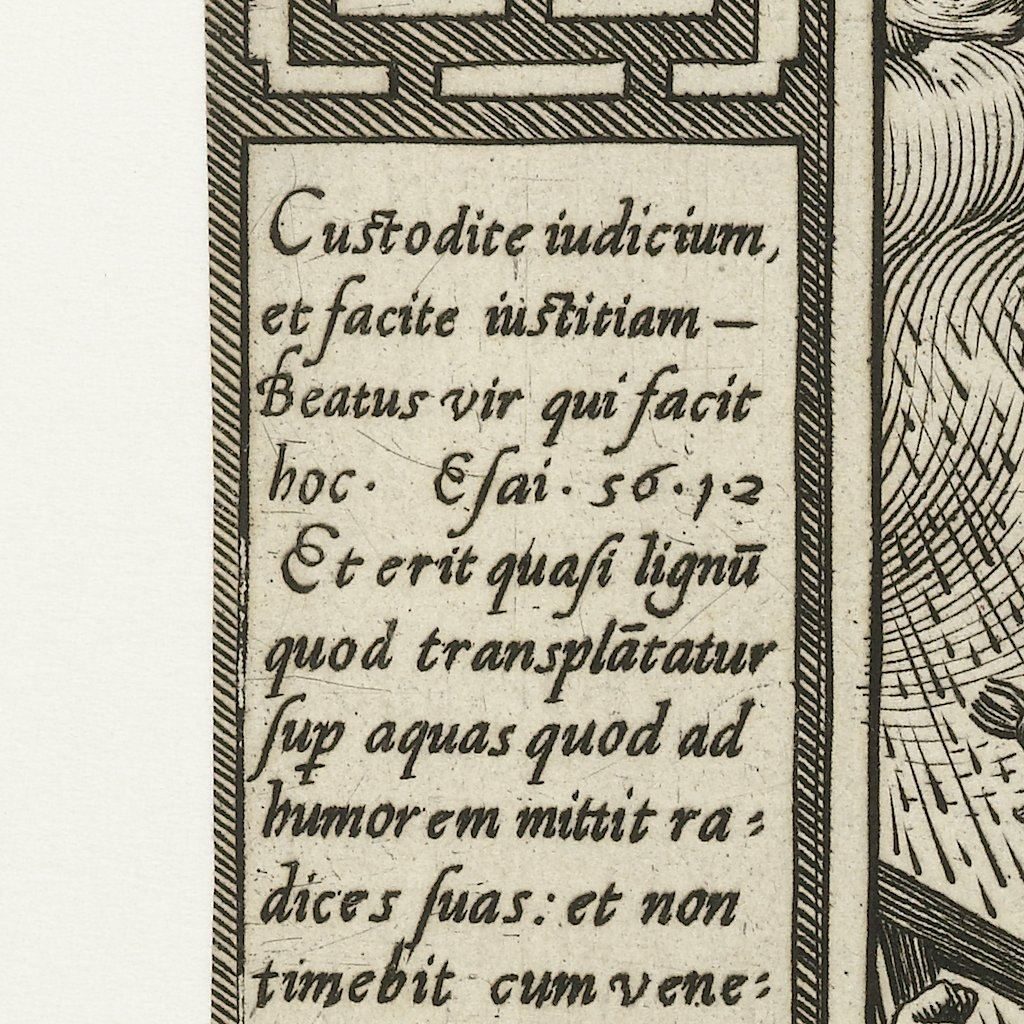 Custodite iudicium,
et facite iustitiam —
Beatus vir qui facit
hoc. Eſai. 56.1.2
Et erit quaſi lignū
quod transplātatur
ſuꝑ aquas quod ad
humorem mittit ra=
dices ſuas: et non
timebit cum vene=